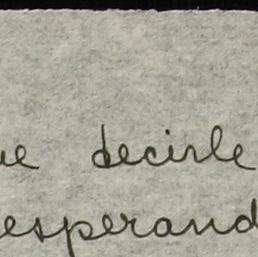 ue decirle
esperand